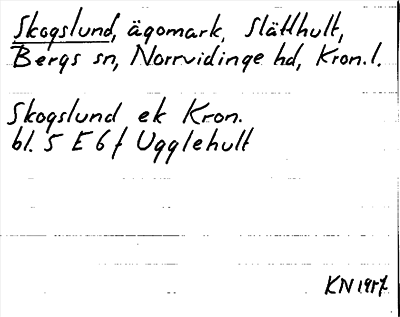 Skogslund, ägomark, Slätthult,
Bergs sn, Norrvidinge hd, Kron.l.
Skogslund ek Kron.
bl. 5 E 6 f Ugglehult
KN 1957